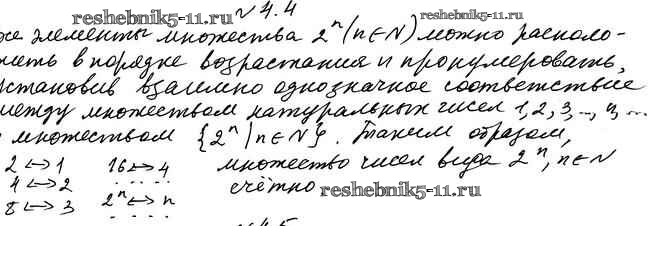 № 4.4
reshebnik5-11.ru reshebnik5-11.ru
же элементы множества 2ⁿ (n∈N) можно располо-
жить в порядке возрастания и пронумеровать,
установив взаимно однозначное соответствие
между множеством натуральных чисел 1, 2, 3, ..., n, ...
и множеством {2ⁿ | n∈N}. Таким образом,
2 ↔ 1 16 ↔ 4 множество чисел вида 2ⁿ, n∈N
4 ↔ 2 ..... счётно reshebnik5-11.ru
8 ↔ 3 2ⁿ ↔ n
.....